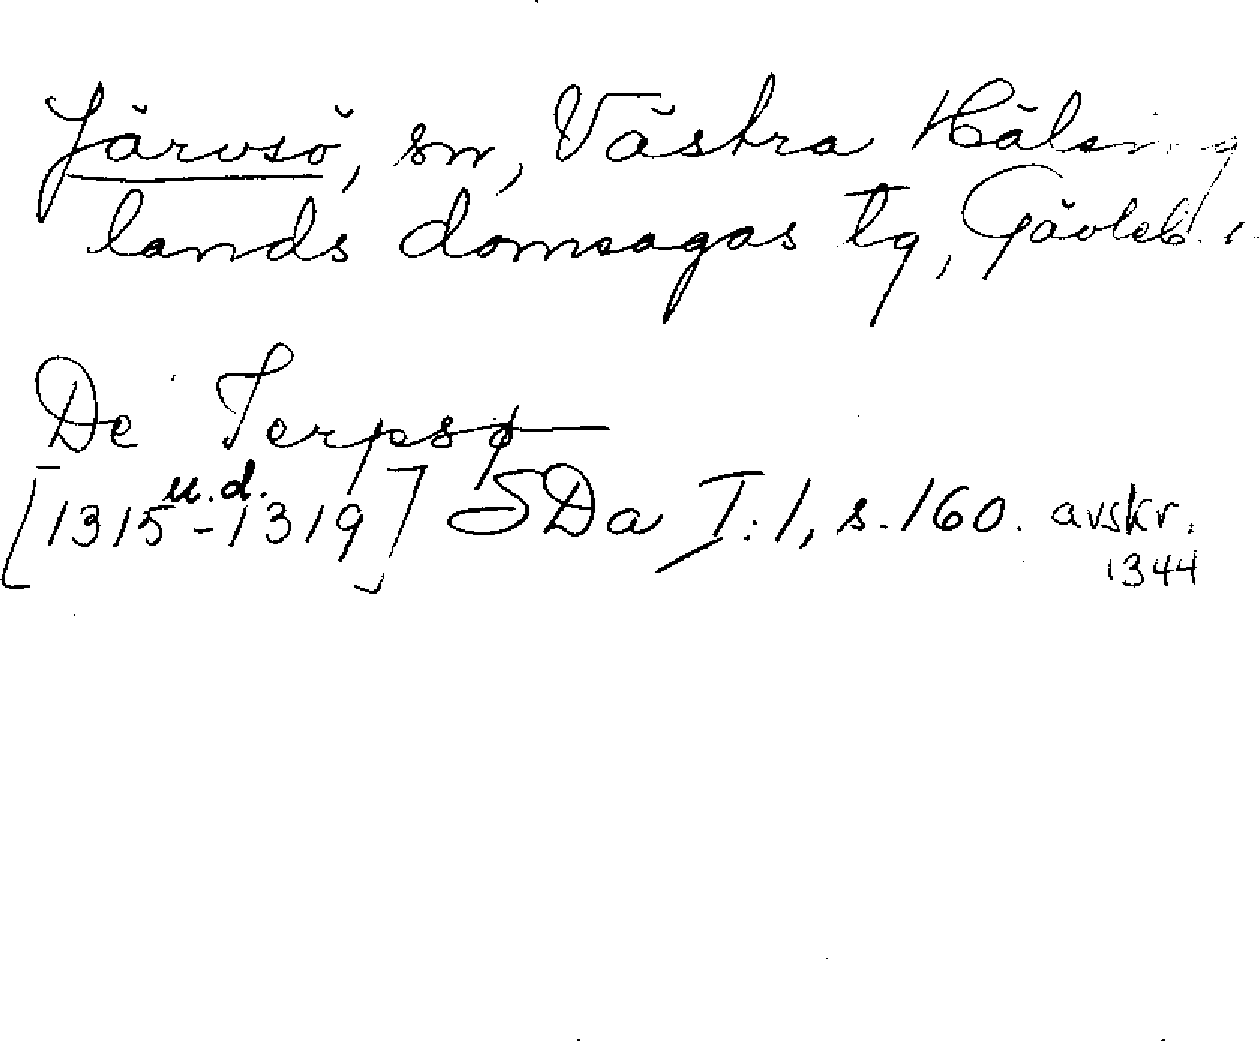 Järvsö, sn, Västra Hälsing
lands domsagas tg, Gävleb. l.
De Terpsø
[1315 u.d. - 1319] SDa I:1, s. 160. avskr.
1344